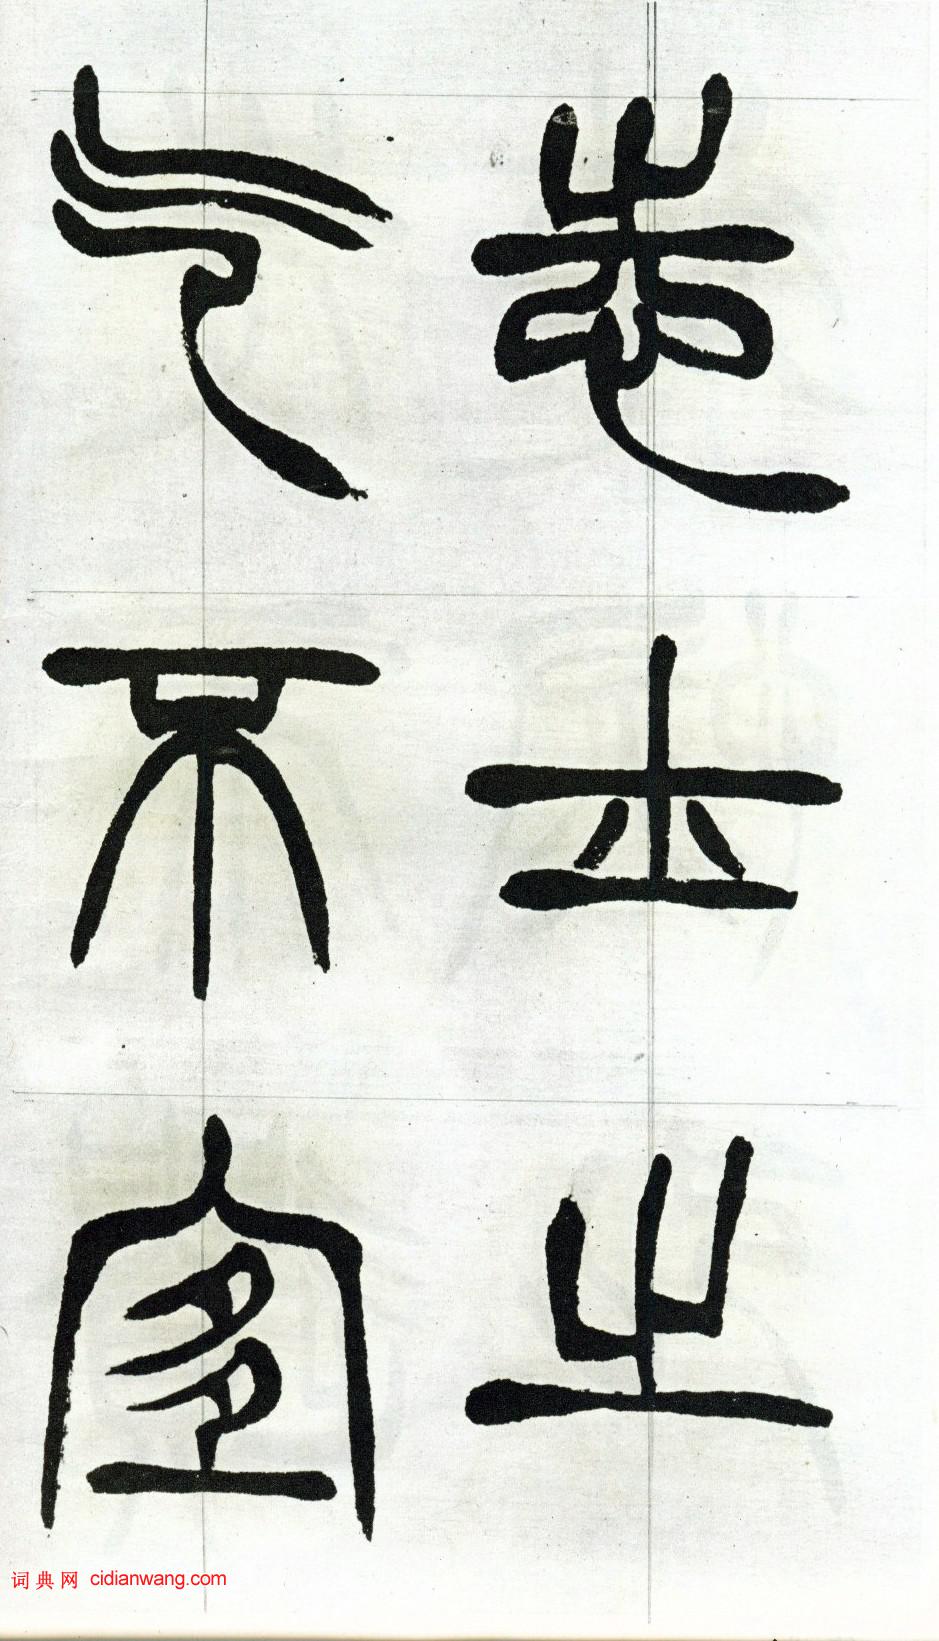 志士之
气不宜
词典网 cidianwang.com